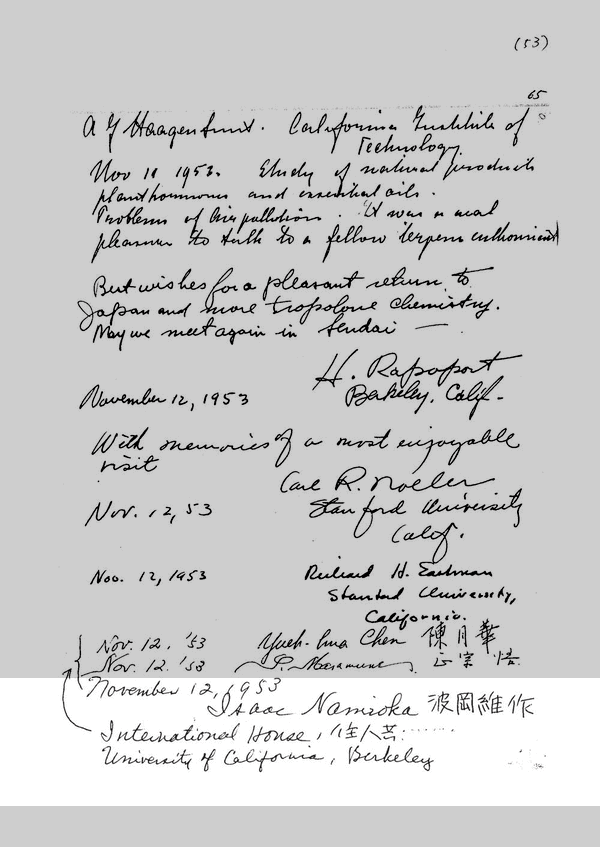 (53)
65
A J Haagen Smit. California Institute of
Technology.
Nov 11 1953. Study of natural products
plant hormones and essential oils.
Problems of air pollution. It was a real
pleasure to talk to a fellow terpene enthousiast
Best wishes for a pleasant return to
Japan and more tropolone chemistry.
May we meet again in Sendai —
H. Rapoport
November 12, 1953 Berkeley, Calif.
With memories of a most enjoyable
visit
Carl R. Noller
Nov. 12, 53 Stanford University
Calif.
Nov. 12, 1953 Richard H. Eastman
Stanford University,
California.
Nov. 12. '53 Yueh-hua Chen 陳月華
Nov. 12. '53 S. Masamune 正宗 悟
November 12, 1953
Isaac Namioka 波岡維作
International House,
University of California, Berkeley